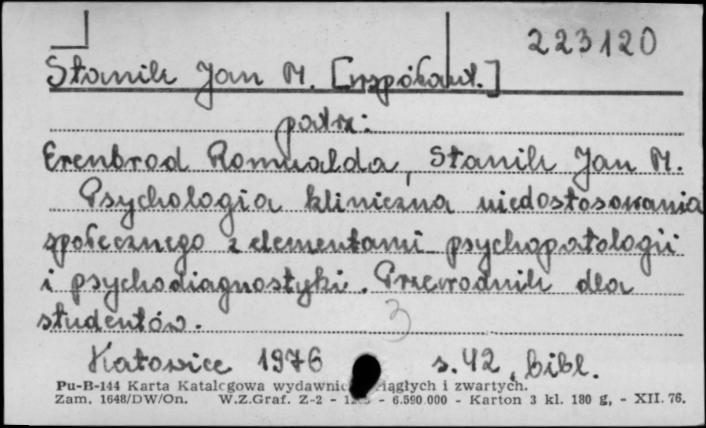 223120
Stanik Jan M. [współaut.]
patrz:
Erenbrod Romualda, Stanik Jan M.
Psychologia kliniczna niedostosowania
społecznego z elementami psychopatologii
i psychodiagnostyki. Przewodnik dla
studentów.
3
Katowice 1976 s. 42, bibl.
Pu-B-144 Karta Katalogowa wydawnic ciągłych i zwartych.
Zam. 1648/DW/On. W.Z.Graf. Z-2 - - 6.590.000 - Karton 3 kl. 180 g, - XII. 76.